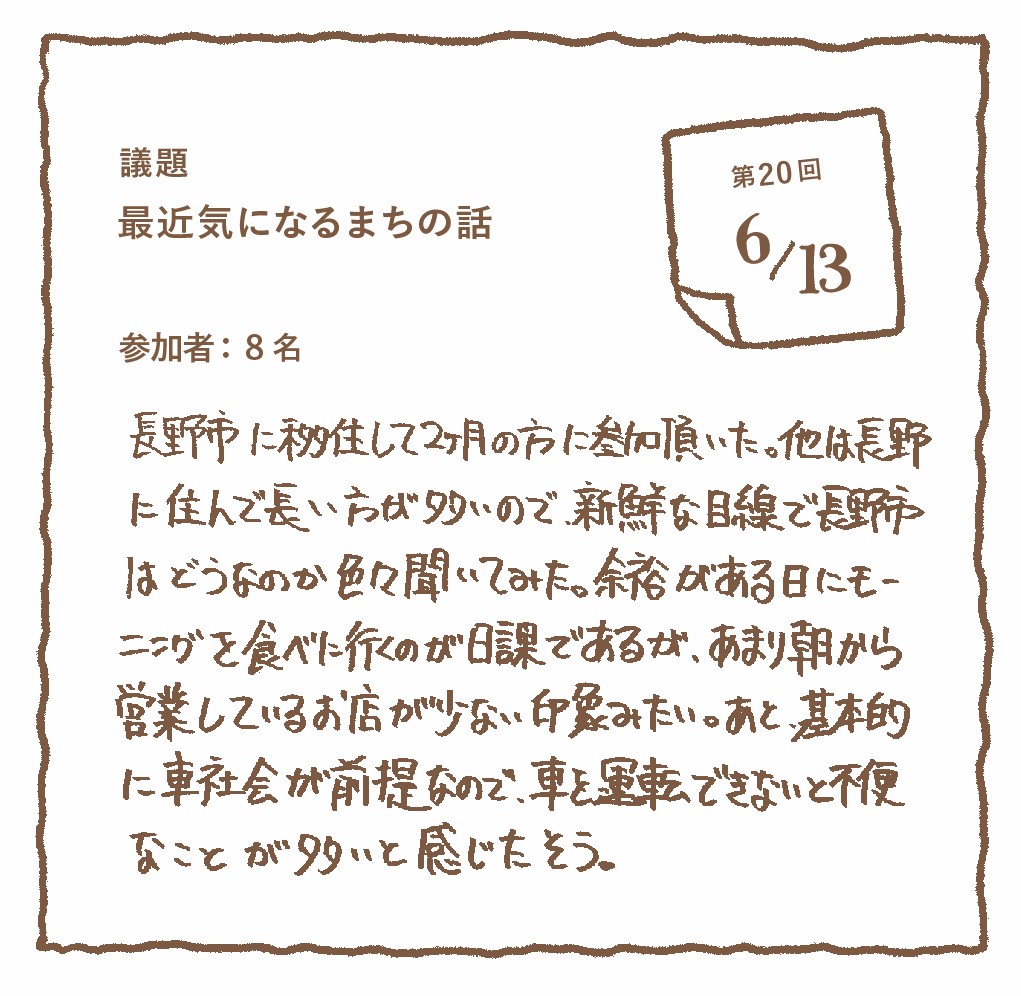 議題
最近気になるまちの話
第20回
6/13
参加者：8名
長野市に移住して2ヶ月の方に参加頂いた。他は長野
に住んで長い方が多いので、新鮮な目線で長野市
はどうなのか色々聞いてみた。余裕がある日にモー
ニングを食べに行くのが日課であるが、あまり朝から
営業しているお店が少ない印象みたい。あと、基本的
に車社会が前提なので、車を運転できないと不便
なことが多いと感じたそう。